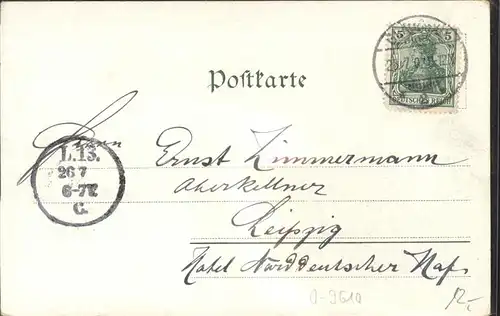 5 5
DEUTSCHES REICH
Postkarte
Herrn
L.13.
26 7
6-7V.
C.
Ernst Zimmermann
Oberkellner
Leipzig
Hotel Norddeutscher Hof
O-9610
12,-